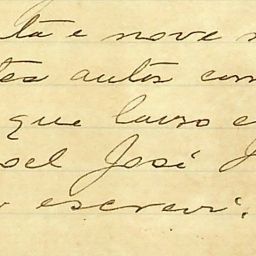 ta e nove
tes autos com
que lavro e
oel José
escrevi.